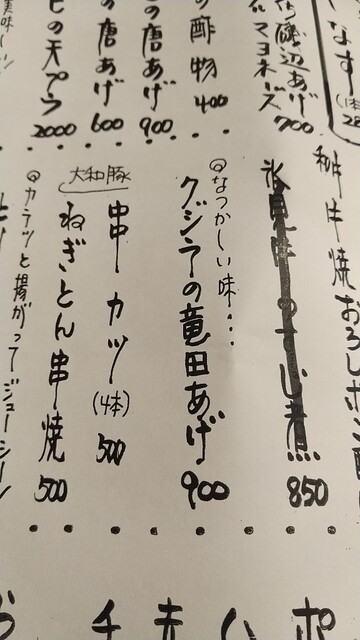 なす
磯辺あげ 700
マヨネーズ
酢物 400
の唐あげ 900
の唐あげ 600
の天プラ 2000
美味しい
牛焼おろしポン
氷見牛のすじ煮 850
◎なつかしい味...
クジラの竜田あげ 900
大和豚
串カツ (4本) 500
ねぎとん串焼 500
◎カラッと揚がってジューシー